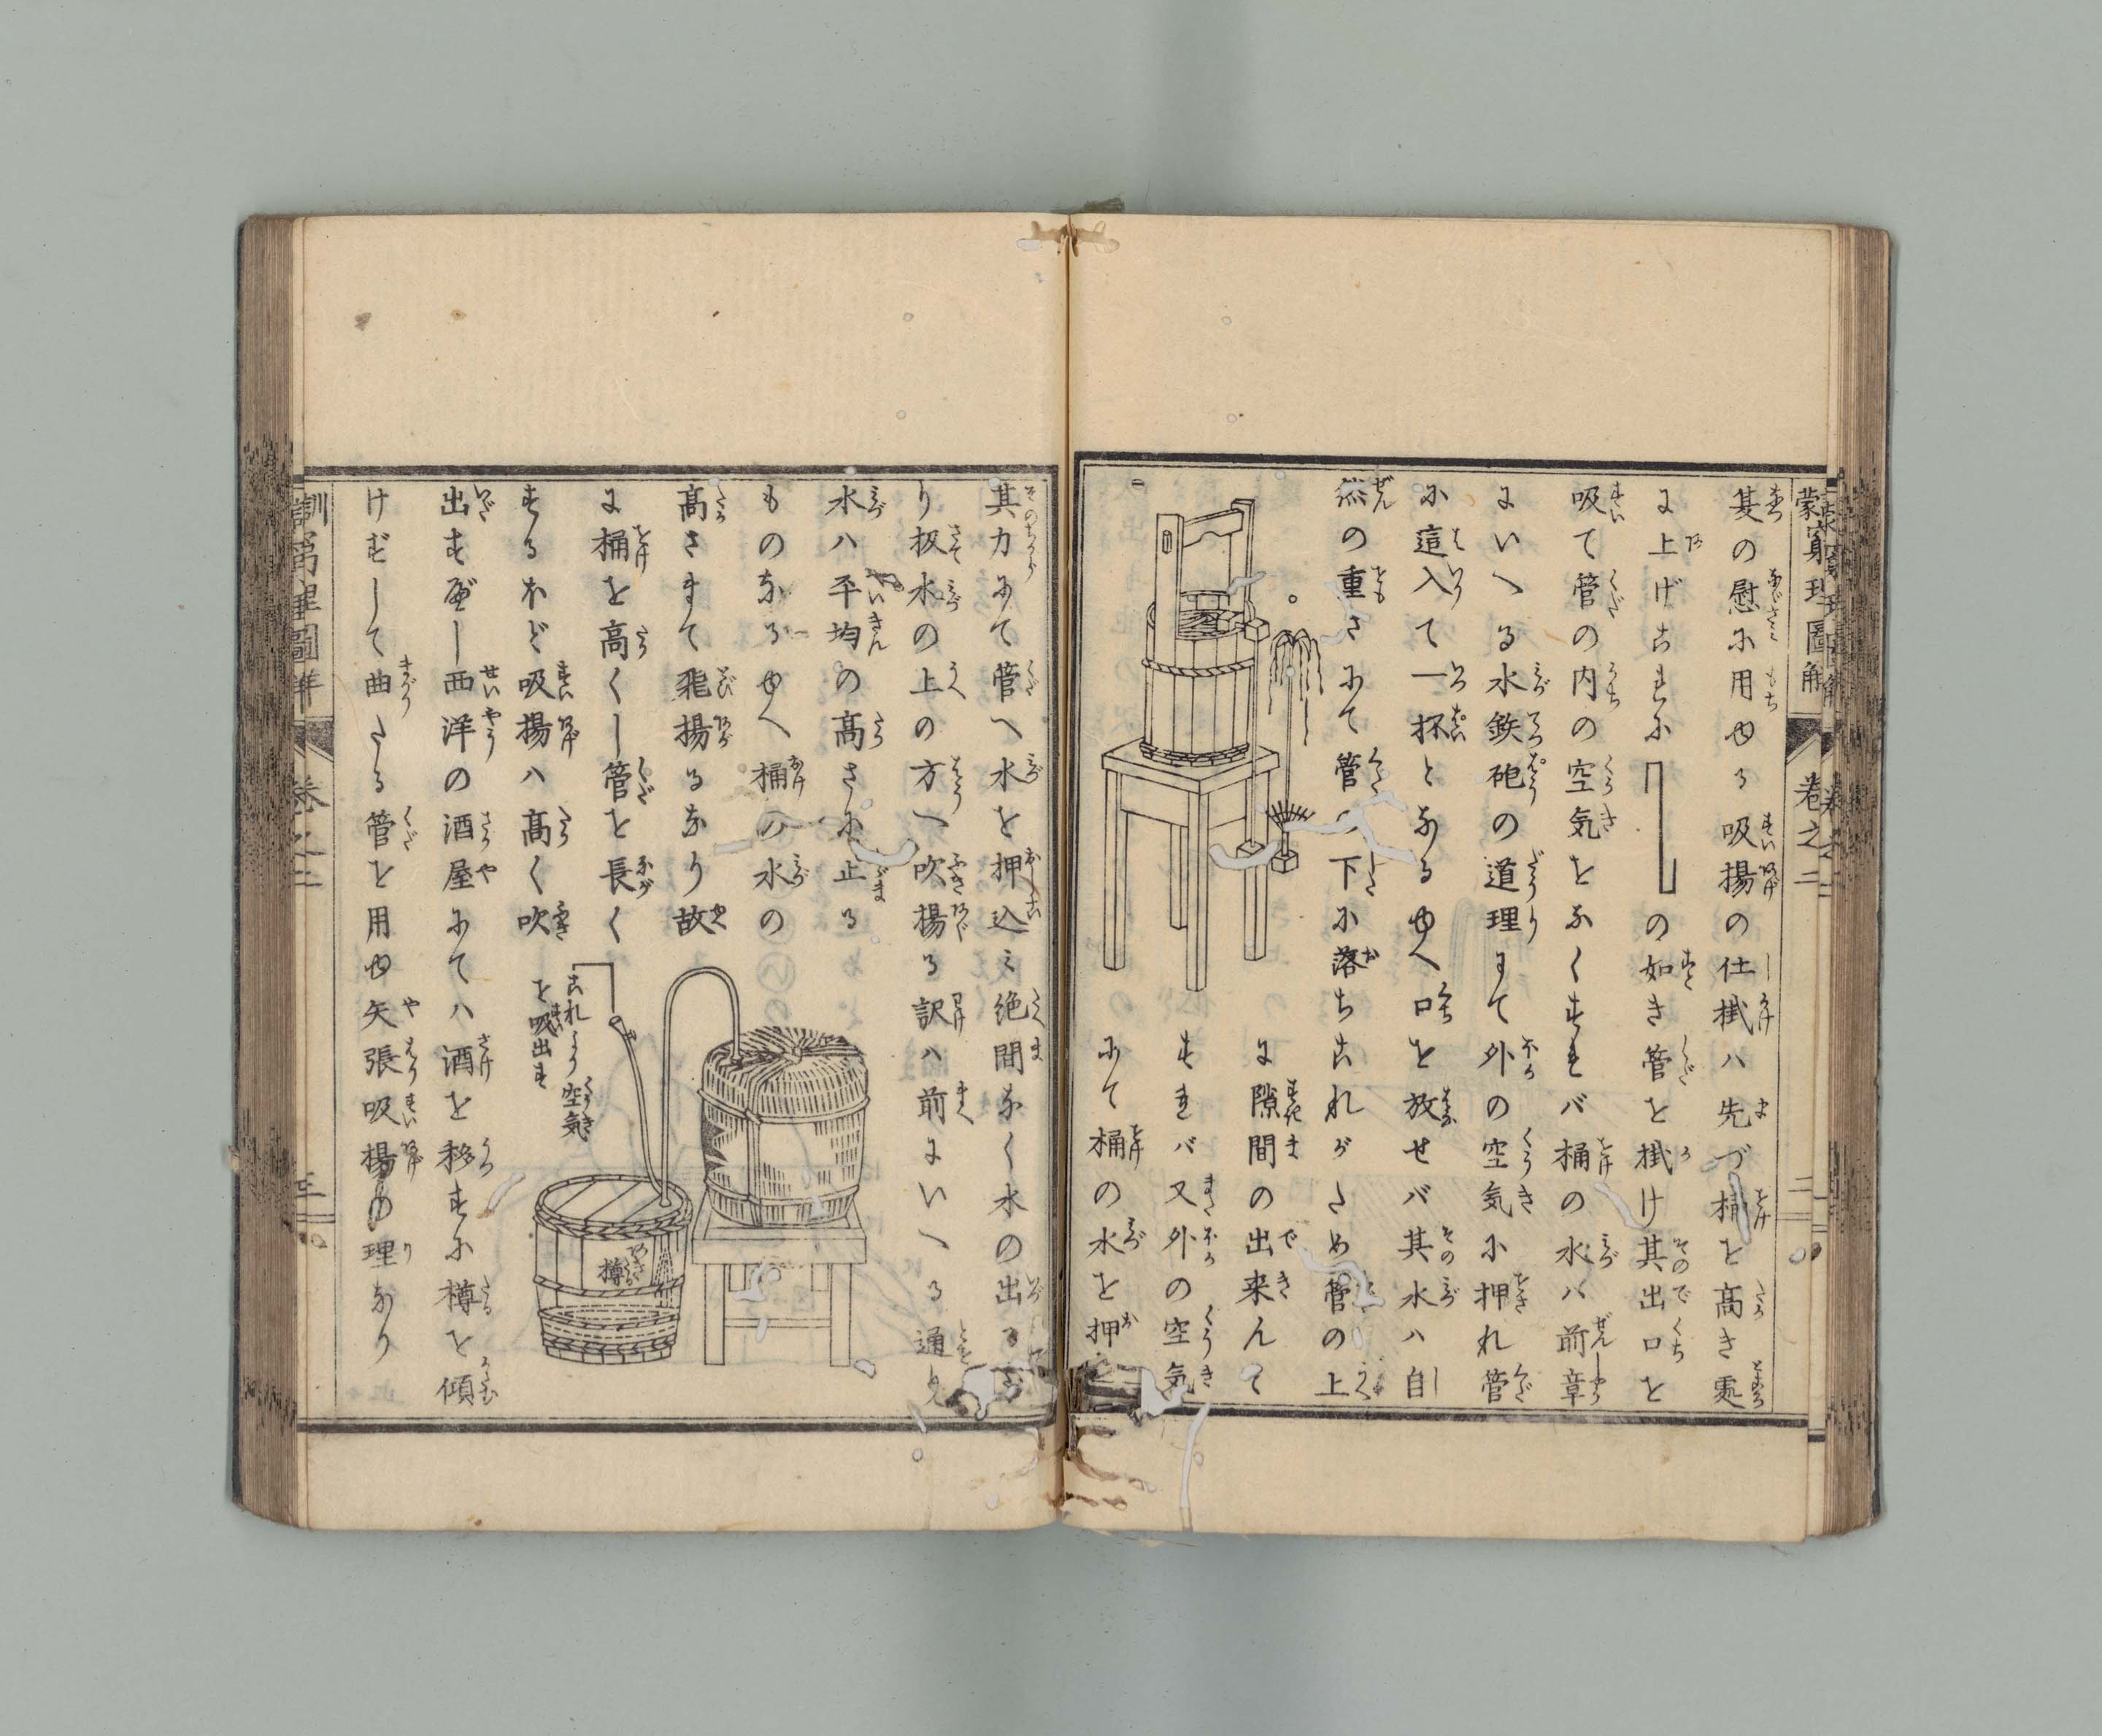 蒙窮理圖解
卷之二
夏の慰に用ゆる吸揚の仕掛ハ先づ桶を高き処
に上げこれに
の如き管を掛け其出口を
吸て管の内の空気をなくすれバ桶の水ハ前章
にいへる水鉄砲の道理にて外の空気に押れ管
に這入て一杯となるゆへ口を放せバ其水ハ自
然の重さにて管の下に落ちこれがため管の上
に隙間の出来んて
すれバ又外の空気
にて桶の水を押
其力にて管へ水を押込ミ絶間なく水の出る
り扨水の上の方へ吹揚る訳ハ前にいへる通り
水ハ平均の高さに止る
ものなるゆへ桶の水の
高さまて飛揚るなり故
に桶を高くし管を長く
するほど吸揚ハ高く吹
出すべし西洋の酒屋にてハ酒を移すに樽を傾
けずして曲たる管を用ゆ矢張吸揚の理なり
これより空気
を吸出す
樽
訓窮理圖解
卷之二
三